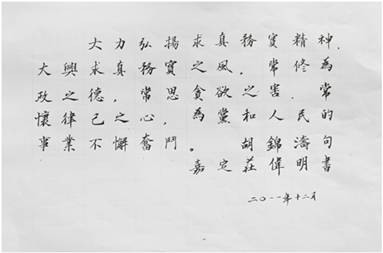 大力弘揚求真務實精神，
大興求真務實之風，常修為
政之德，常思貪欲之害，常
懷律己之心，為黨和人民的
事業不懈奮鬥。胡錦濤句
嘉定莊偉明書
二〇一一年十二月